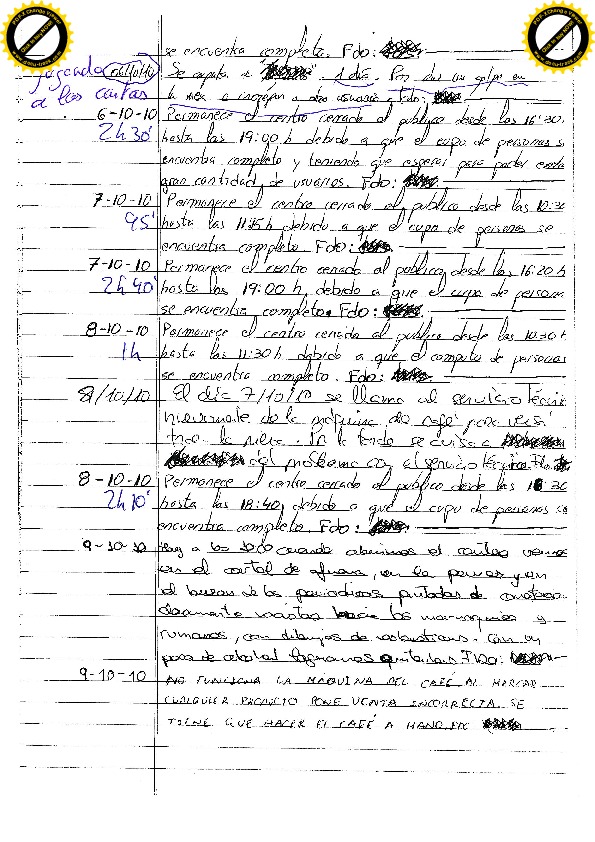 se encuentra completo. Fdo:
jugando 06/10/10 Se expulsa a 1 día. Por dar un golpe en
a las cartas la mesa e increpan a otro usuario. Fdo:
6-10-10 Permanece el centro cerrado al público desde las 16:30,
2h 30' hasta las 19:00 h debido a que el cupo de personas se
encuentra completo y teniendo que esperar para poder entrar
gran cantidad de usuarios. Fdo:
7-10-10 Permanece el centro cerrado al público desde las 10:30
95' hasta las debido a que el cupo de personas se
encuentra completo. Fdo:
7-10-10 Permanece el centro cerrado al público desde las 16:20 h
2h 40' hasta las 19:00 h, debido a que el cupo de personas
se encuentra completo. Fdo:
8-10-10 Permanece el centro cerrado al público desde las 10:30 h
1h hasta las 11:30 h debido a que el computo de personas
se encuentra completo. Fdo:
8/10/10 El día 7/10/10 se llama al servicio técnico
nuevamente de la máquina de café para
la tarde se avisa a
del problema con el servicio técnico. Fdo.
8-10-10 Permanece el centro cerrado al público desde las 16 30
2h 10' hasta las 18:40, debido a que el cupo de personas se
encuentra completo. Fdo:
9-10-10 Hoy a las cuando abrimos el centro vemos
en el cartel de afuera, en la pared y en
el buzón de los periódicos pintadas de
hacia los marroquíes y
rumanos, con dibujos de Con un
poco de alcohol logramos quitarlas. Fdo:
9-10-10 NO FUNCIONA LA MÁQUINA DEL CAFÉ AL MARCAR
CUALQUIER PRODUCTO PONE VENTA INCORRECTA SE
TIENE QUE HACER EL CAFÉ A MANO. FDO